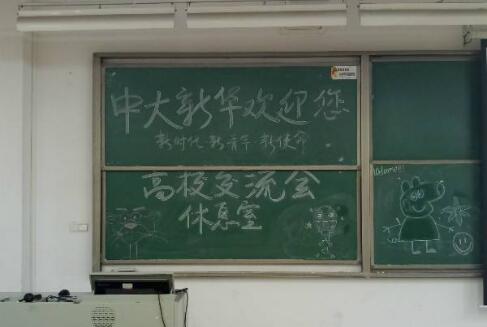 中大新华欢迎您
新时代 新青年 新使命
高校交流会
休息室
Welcome!